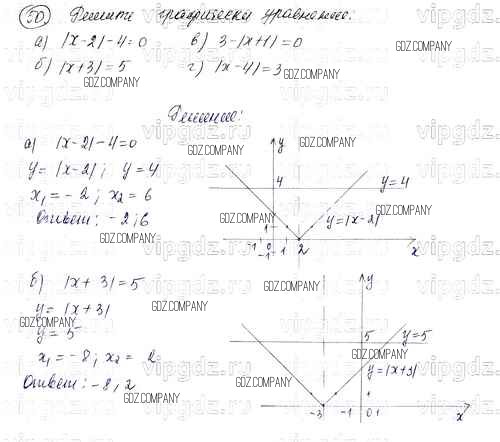 50 Решите графически уравнение:
а) |x-2|-4=0 в) 3-|x+1|=0
б) |x+3|=5 г) |x-4|=3
Решение:
а) |x-2|-4=0
y=|x-2|; y=4
x₁=-2; x₂=6
Ответ: -2; 6
y
4
y=4
y=|x-2|
1
-1 0 1 2
-1
x
б) |x+3|=5
y=|x+3|
y=5
x₁=-8; x₂=2
Ответ: -8, 2
y
5
y=5
y=|x+3|
-3 -1 0 1
x
GDZ.COMPANY
vipgdz.ru